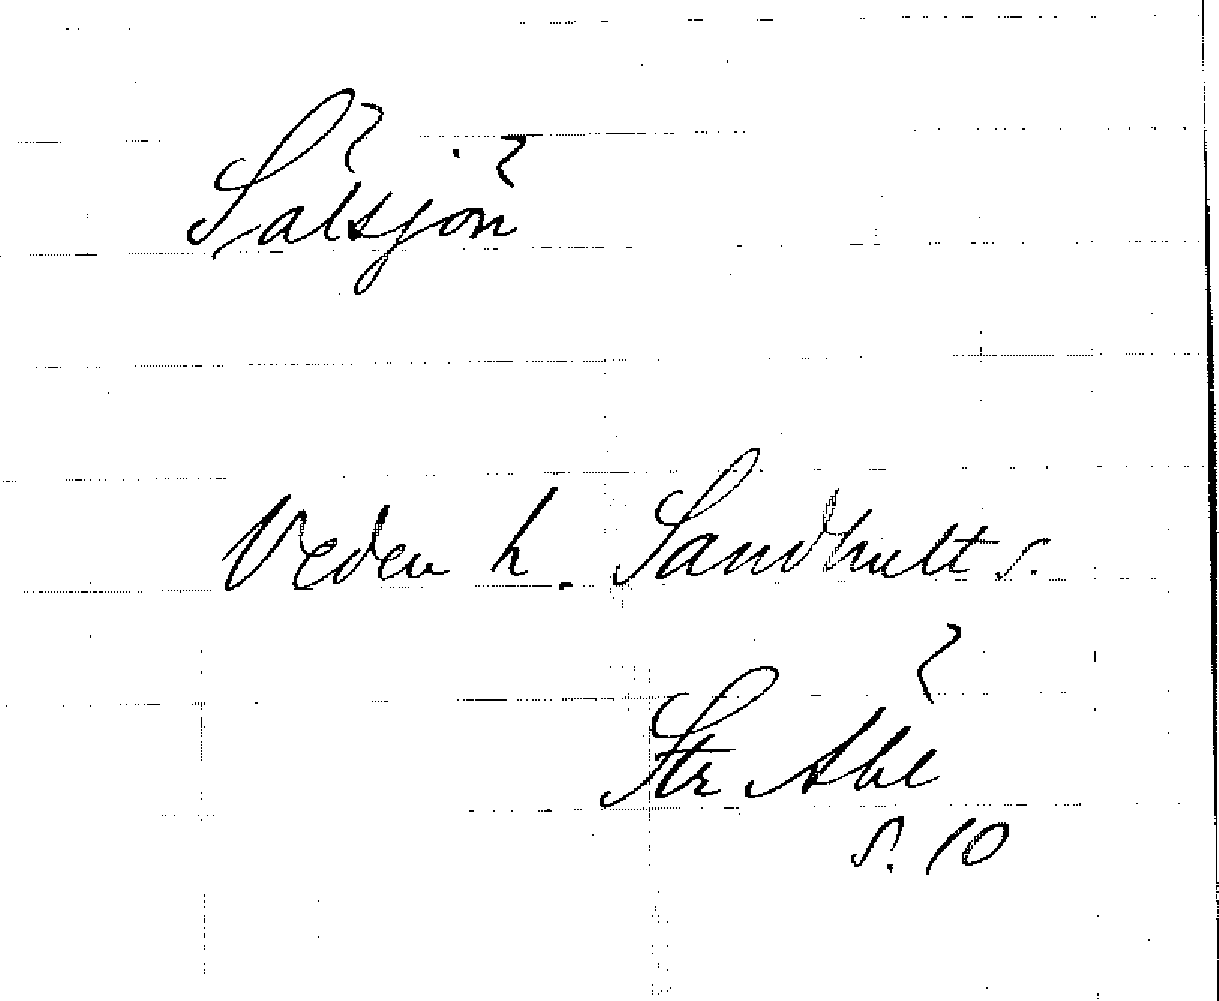 Sålsjön
Veden h. Sandhult s.
Str Abe
s. 10